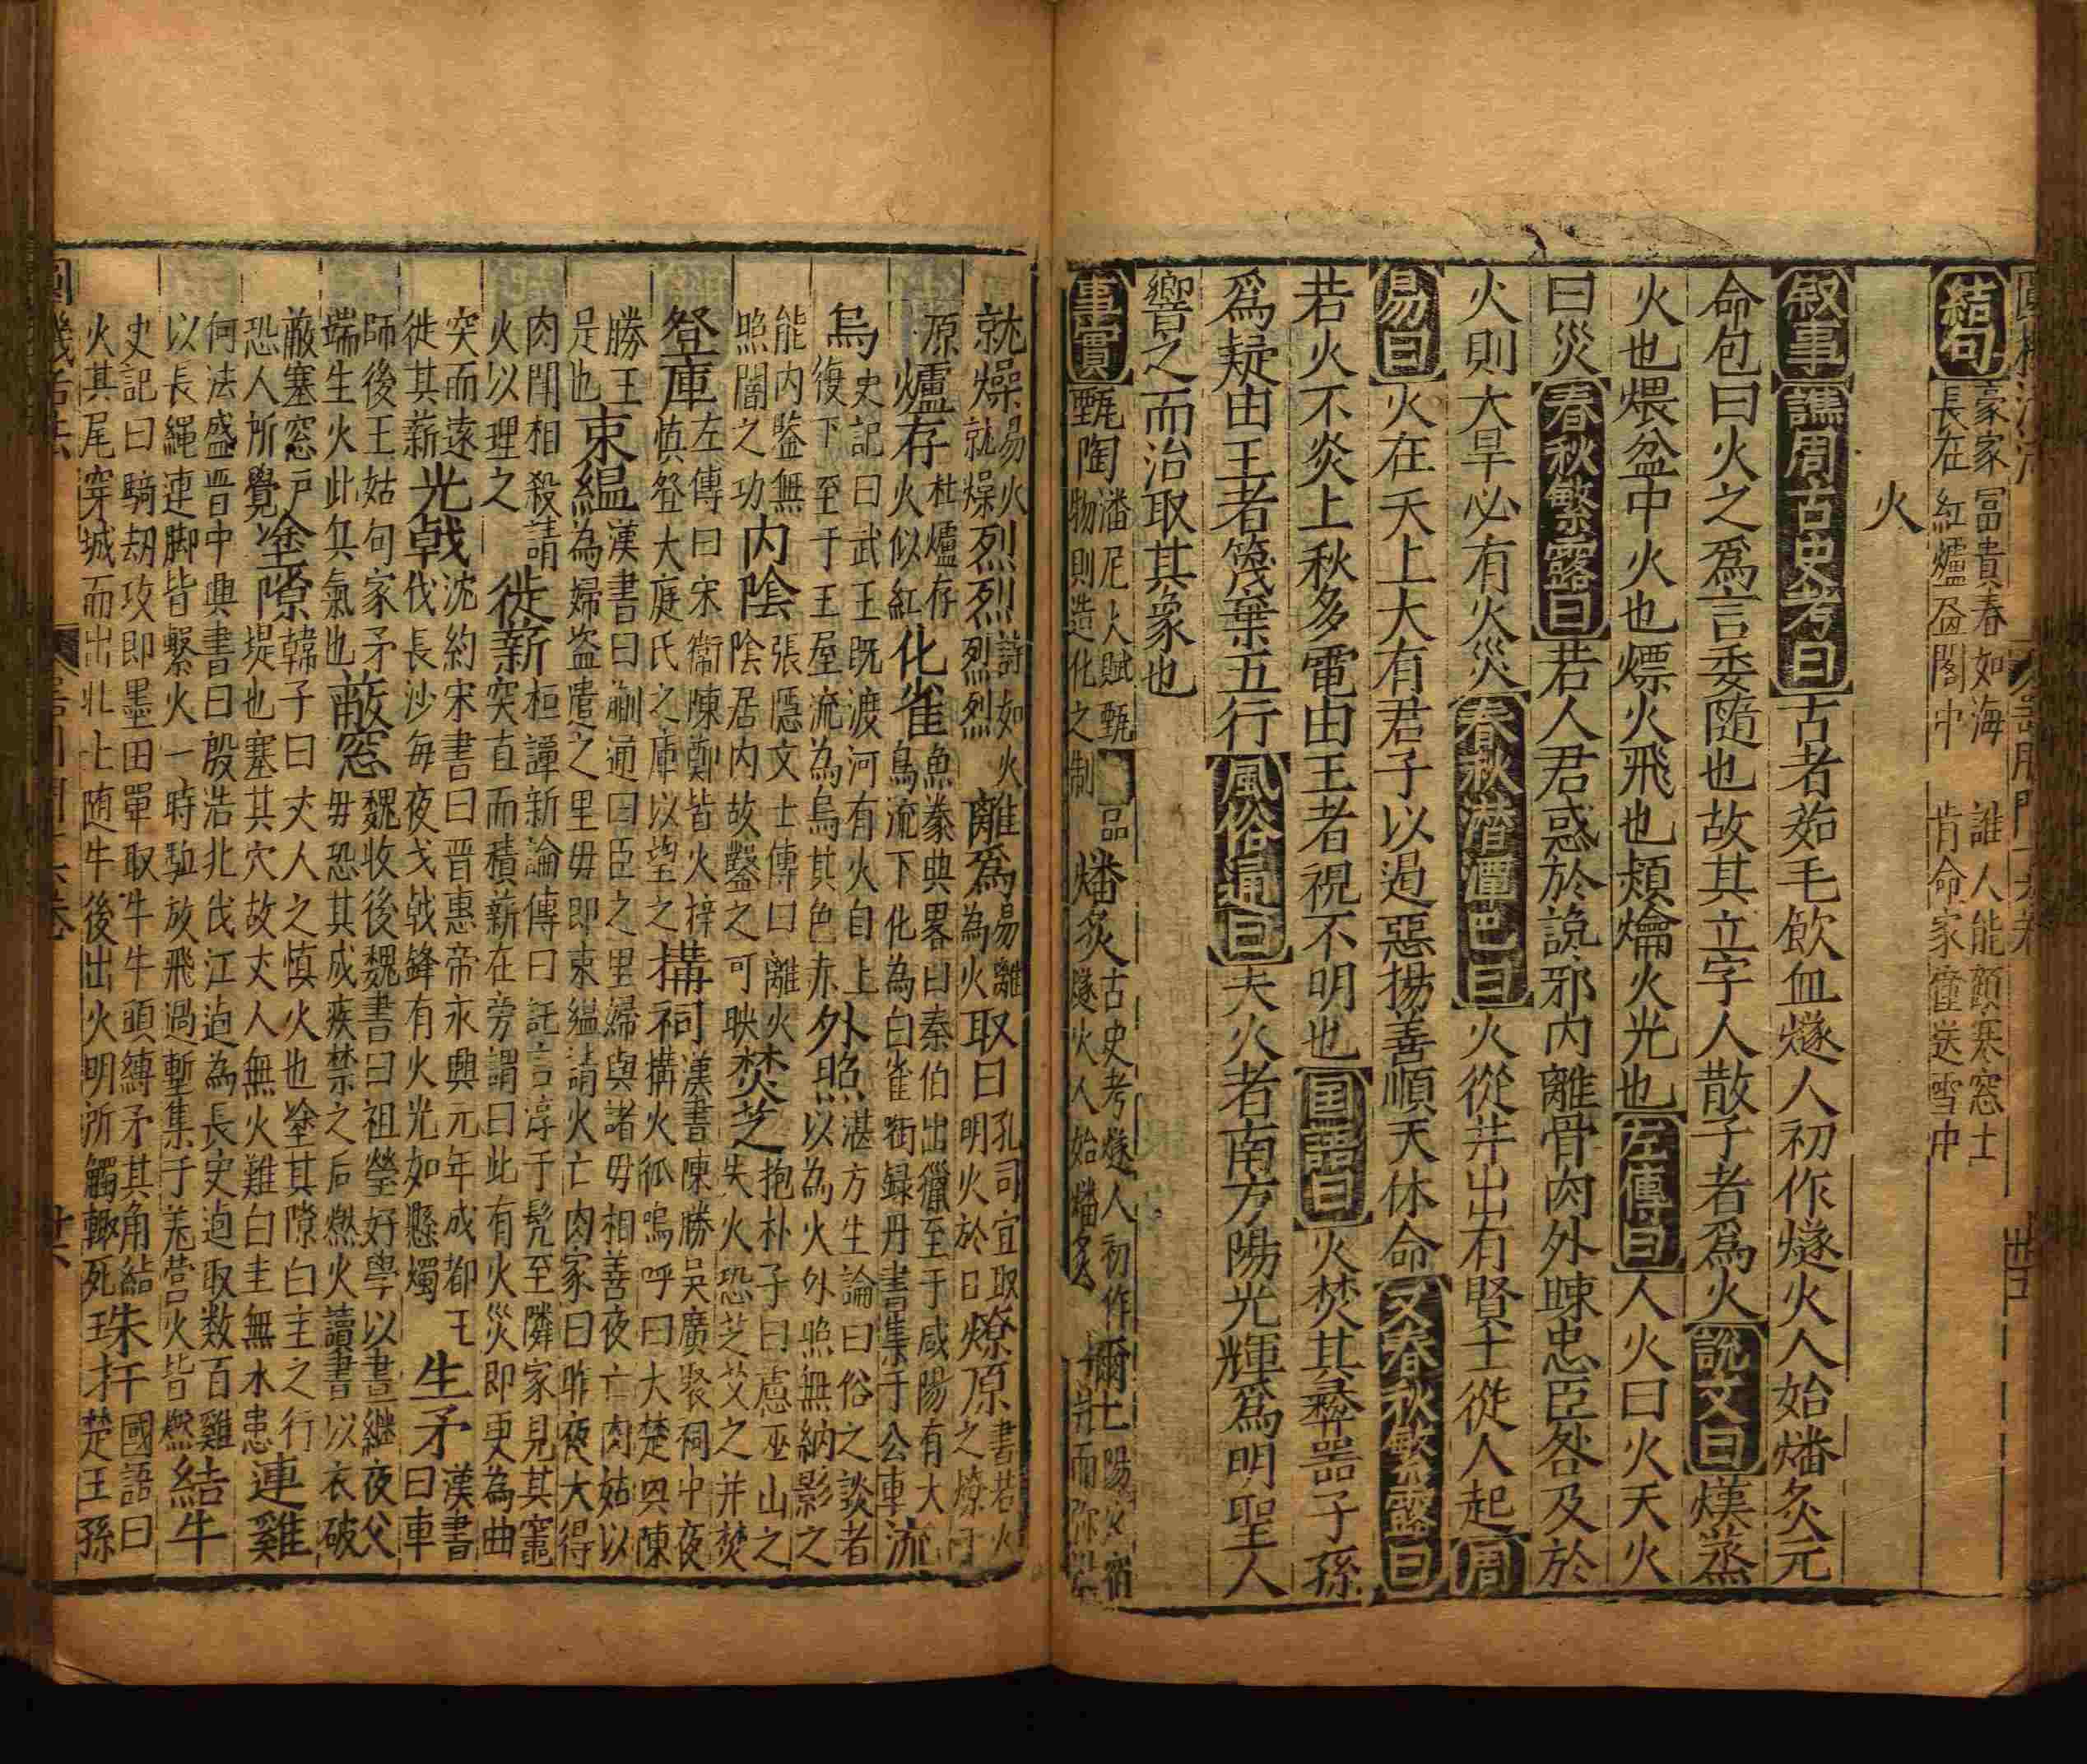 結句 豪家冨貴春如海 誰人能顧寒窓士
長在紅爐煖閣中 肯命家僮送雪中
火
叙事 譙周古史考曰 古者茹毛飲血燧人初作燧火人始燔炙元
命包曰火之爲言委隨也故其立字人散子者爲火 說文曰 熯蒸
火也煨盆中火也熛火飛也熲爚火光也 左傳曰 人火曰火天火
曰災 春秋繁露曰 若人君惑於讒邪内離骨肉外疎忠臣咎及於
火則大旱必有火災 春秋潜潭巴曰 火從井出有賢士從人起 周
易曰 火在天上大有君子以遏惡揚善順天休命 又春秋繁露曰
若火不炎上秋多電由王者視不明也 国語曰 火焚其彛噐子孫
爲疑由王者篾棄五行 風俗通曰 夫火者南方陽光輝爲明聖人
嚮之而治取其象也
事實 甄陶 潘尼火賦甄品物則造化之制 燔炙 古史考燧人初作燧火人始燔炙
就燥 易火就燥 烈烈 詩如火烈烈 離爲 易離為火 取日 孔司宜取明火於日 燎原 書若火之燎于
原 爐存 杜爐存火似紅 化雀 魚豢典畧曰秦伯出獵至于咸陽有大鳥流下化為白雀銜録丹書集于公車 流
烏 史記曰武王既渡河有火自上復下至于王屋流為烏其色赤 外照 湛方生論曰俗之談者以為火外照無納影之
能内鍳無照闇之功 内陰 張隱文士傳曰離火陰居内故鑿之可映 焚芝 抱朴子曰慮巫山之失火恐芝艾之并焚
登庫 左傳曰宋衞陳鄭皆火梓慎登大庭氏之庫以望之 搆祠 漢書陳勝吳廣聚祠中夜搆火狐鳴呼曰大楚興陳
勝王是也 束緼 漢書曰蒯通曰臣之里婦與諸母相善夜亡肉姑以為婦盗遣之里毋即束緼請火亡肉家曰昨夜犬得
肉鬥相殺請火以理之 徙薪 桓譚新論傳曰託言淳于髠至隣家見其竈突直而積薪在旁謂曰此有火災即更為曲
突而遠徙其薪 光戟 沈約宋書曰晋惠帝永興元年成都王伐長沙每夜戈戟鋒有火光如懸燭 生矛 漢書曰車
師後王姑句家矛端生火此兵氣也 蔽窓 魏收後魏書曰祖瑩好學以晝継夜父毋恐其成疾禁之后燃火讀書以衣破
蔽塞窓戸恐人所覺 塗隙 韓子曰丈人之慎火也塗其隙白主之行堤也塞其穴故丈人無火難白圭無水患 連雞
何法盛晋中興書曰殷浩北伐江逌為長史逌取数百雞以長縄連脚皆繋火一時駈放飛過塹集于羌营火皆燃 結牛
史記曰騎刼攻即墨田單取牛牛頭縛矛其角結火其尾穿城而出壮士随牛後出火明所觸輙死 珠扞 國語曰楚王孫